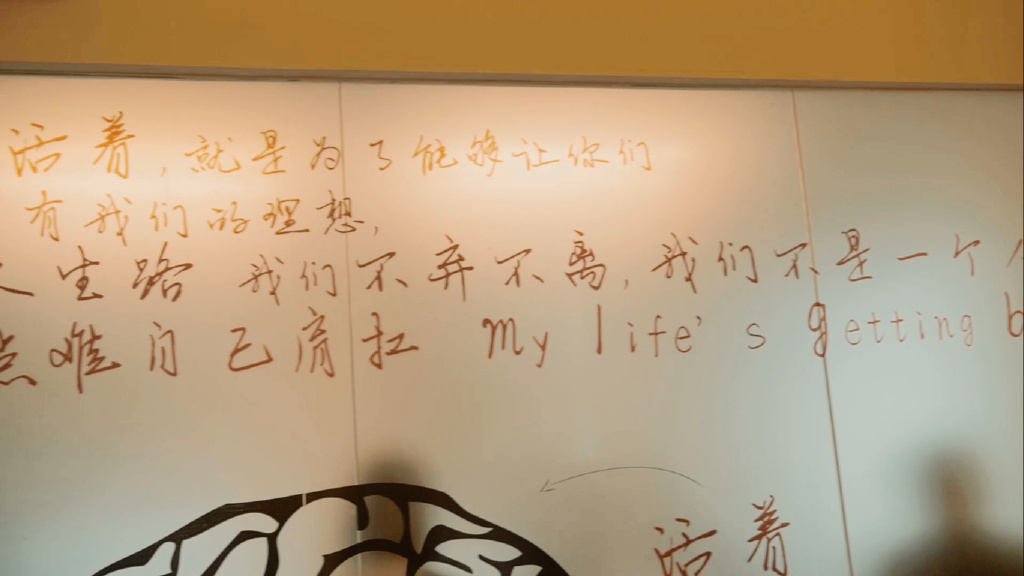 活着，就是为了能够让你们
有我们的理想，
人生路 我们不弃不离，我们不是一个
点难自己肩扛 My life's getting b
活着